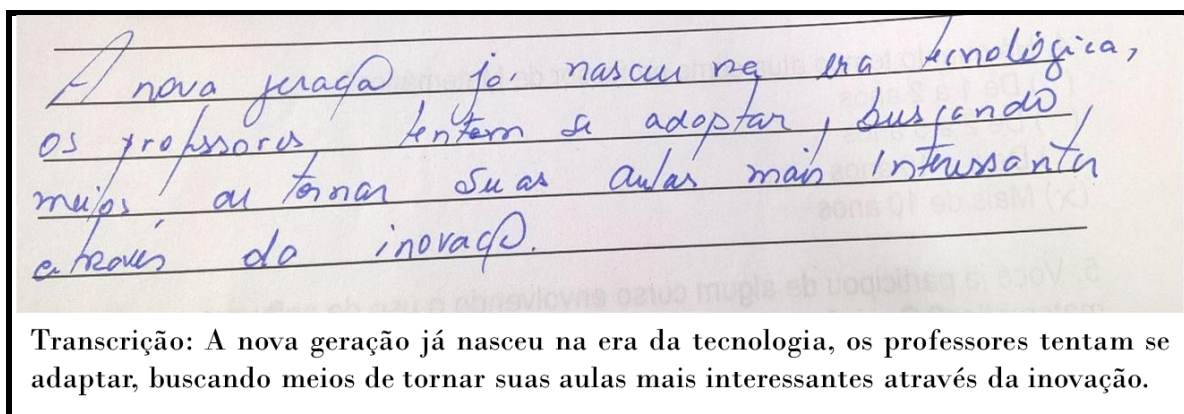 A nova geração já nasceu na era tecnológica,
os professores tentam se adaptar, buscando
meios de tornar suas aulas mais interessantes
através da inovação.
(x) Mais de 10 anos
5. Você já participou de algum curso envolvendo o uso de
Transcrição: A nova geração já nasceu na era da tecnologia, os professores tentam se
adaptar, buscando meios de tornar suas aulas mais interessantes através da inovação.